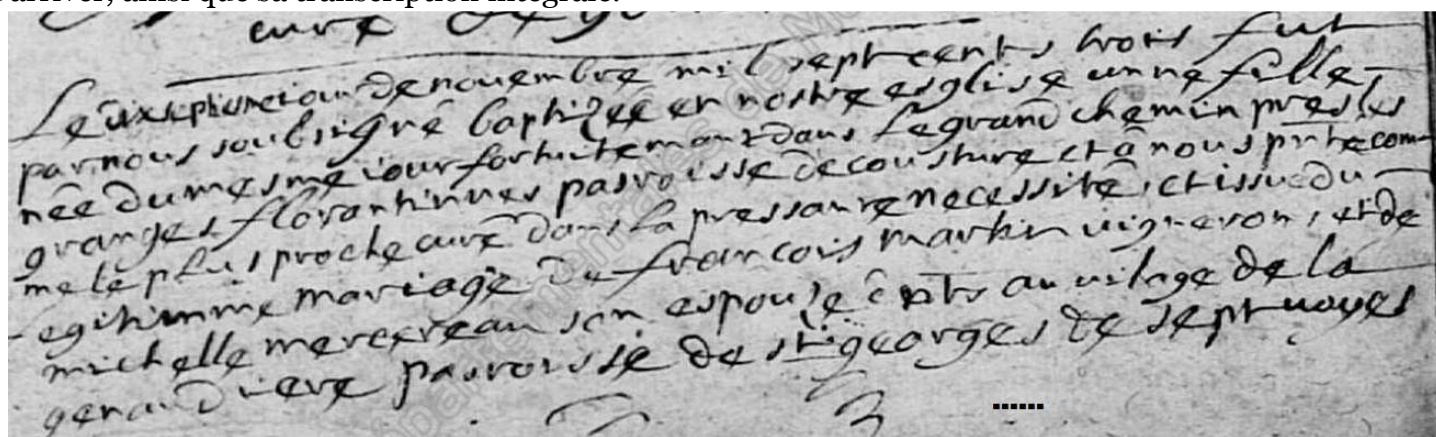 arriver, ainsi que sa transcription intégrale.
curé
Le dixseptiesme iour de nouembre mil sept cents trois fut
par nous soubsigné baptizée en nostre esglise unne fille
née du mesme iour fortuitement dans le grand chemin pres les
granges florantinnes parroisse de cousture et a nous pnte com-
me le plus proche curé dans la pressante necessité, et issue du
legitimme mariage de francois martin uigneron, et de
michelle mercereau son espouze au uilage de la
paroisse de st georges de sept uoyes